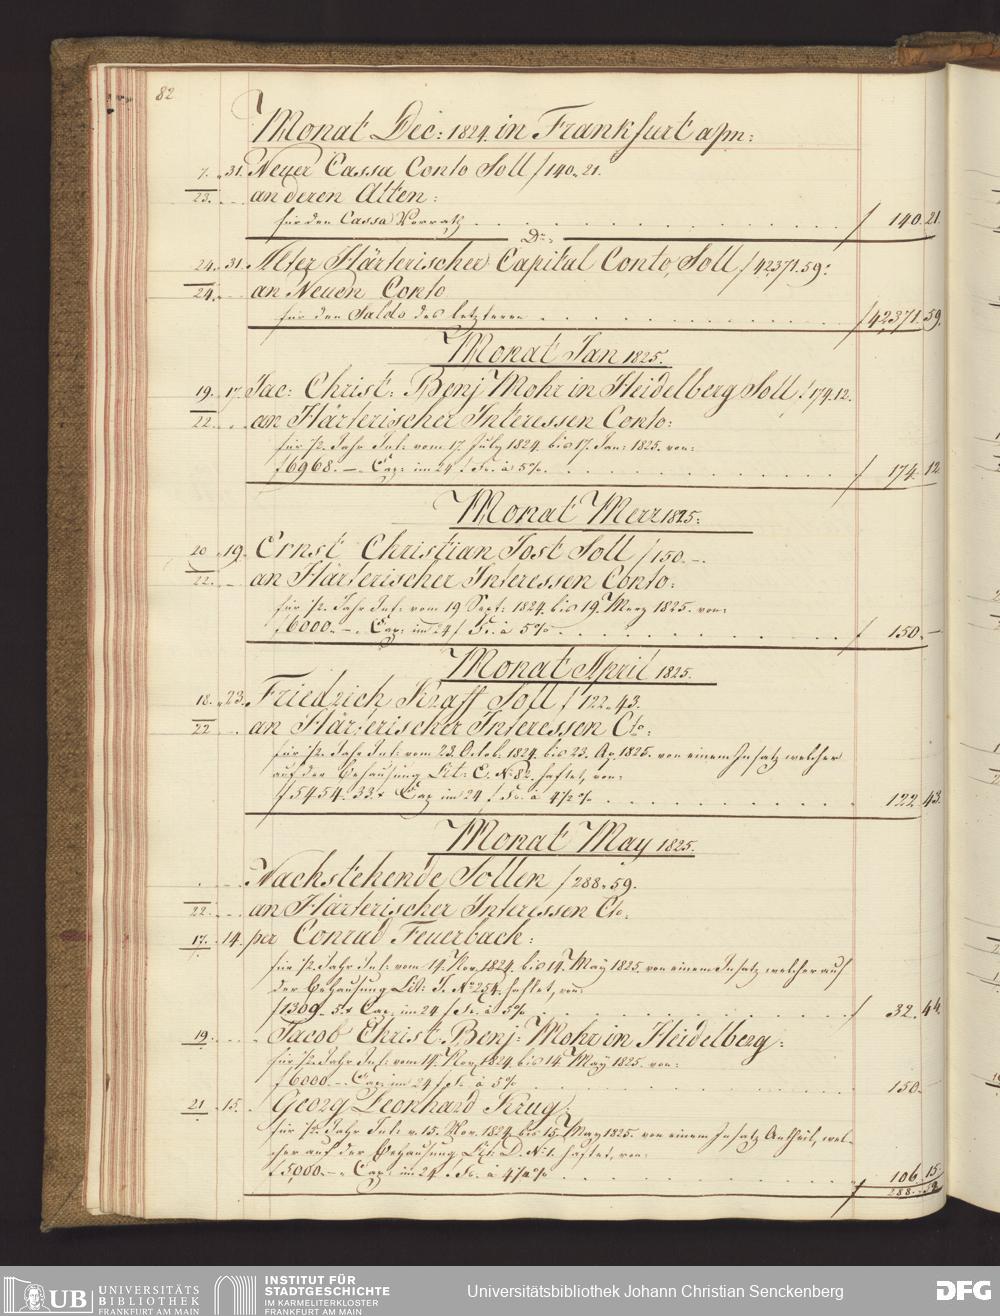 82
Monat Dec: 1824. in Frankfurt a/m:
7. 31. Neuer Cassa Conto Soll f 140. 21.
23. an deren Alten:
für den Cassa Vorrath f 140. 21.
Do.
24. 31. Alter Härterischer Capital Conto, Soll f 42371. 59:
24. an Neuen Conto
für den Saldo des letzteren f 42371. 59.
Monat Jan 1825.
19. 17. Jac: Christ: Benj Mohr in Heidelberg Soll f 174. 12.
22. an Härterischer Interessen Conto:
für 1/2. Jahr Int: vom 17. July 1824. bis 17. Jan: 1825. von:
f 6968. –. Cap: im 24 f. Fs. à 5%. f 174. 12
Monat Merz 1825.
20 19. Ernst Christian Jost Soll f 150. –.
22. an Härterischer Interessen Conto:
für 1/2. Jahr Int: vom 19 Sept: 1824. bis 19. Merz 1825. von:
f 6000. –. Cap: im 24 f. Fs. à 5%. f 150. –
Monat April 1825.
18. 23. Friedrich Kraff Soll f 122. 43.
22 an Härterischer Interessen Cto:
für 1/2. Jahr Int: vom 23. Octob. 1824. bis 23. Ap. 1825. von einem Insatz welcher
auf der Behausung Lit: C. No. 82. haftet, von:
f 5454. 33x Cap im 24 f. Fs. à 4 1/2 % 122. 43.
Monat May 1825.
Nachstehende Sollen f 288. 59.
22. an Härterischer Interessen Cto.
17. 14. per Conrad Feuerbach:
für 1/2. Jahr Int: vom 14. Nov. 1824. bis 14. May 1825. von einem Insatz welcher auf
der Behausung Lit: J. No. 254. haftet, von:
f 1309. 5x Cap. im 24 f. Fs. à 5% f 32. 44.
19. Jacob Christ: Benj: Mohr in Heidelberg:
für 1/2. Jahr Int: vom 14. Nov. 1824. bis 14. May 1825. von:
f 6000. –. Cap: im 24 f. Fs. à 5% 150. –
21 15. Georg Leonhard Krug:
für 1/2. Jahr Int: v. 15. Nov. 1824. bis 15. May 1825. von einem Insatz Antheil, wel-
cher auf der Behausung Lit: D. No. 1. haftet, von:
f 5000. –. Cap: im 24 f. Fs. à 4 1/4 % 106. 15.
f 288. 59.
UB UNIVERSITÄTS BIBLIOTHEK FRANKFURT AM MAIN
INSTITUT FÜR STADTGESCHICHTE IM KARMELITERKLOSTER FRANKFURT AM MAIN
Universitätsbibliothek Johann Christian Senckenberg
DFG